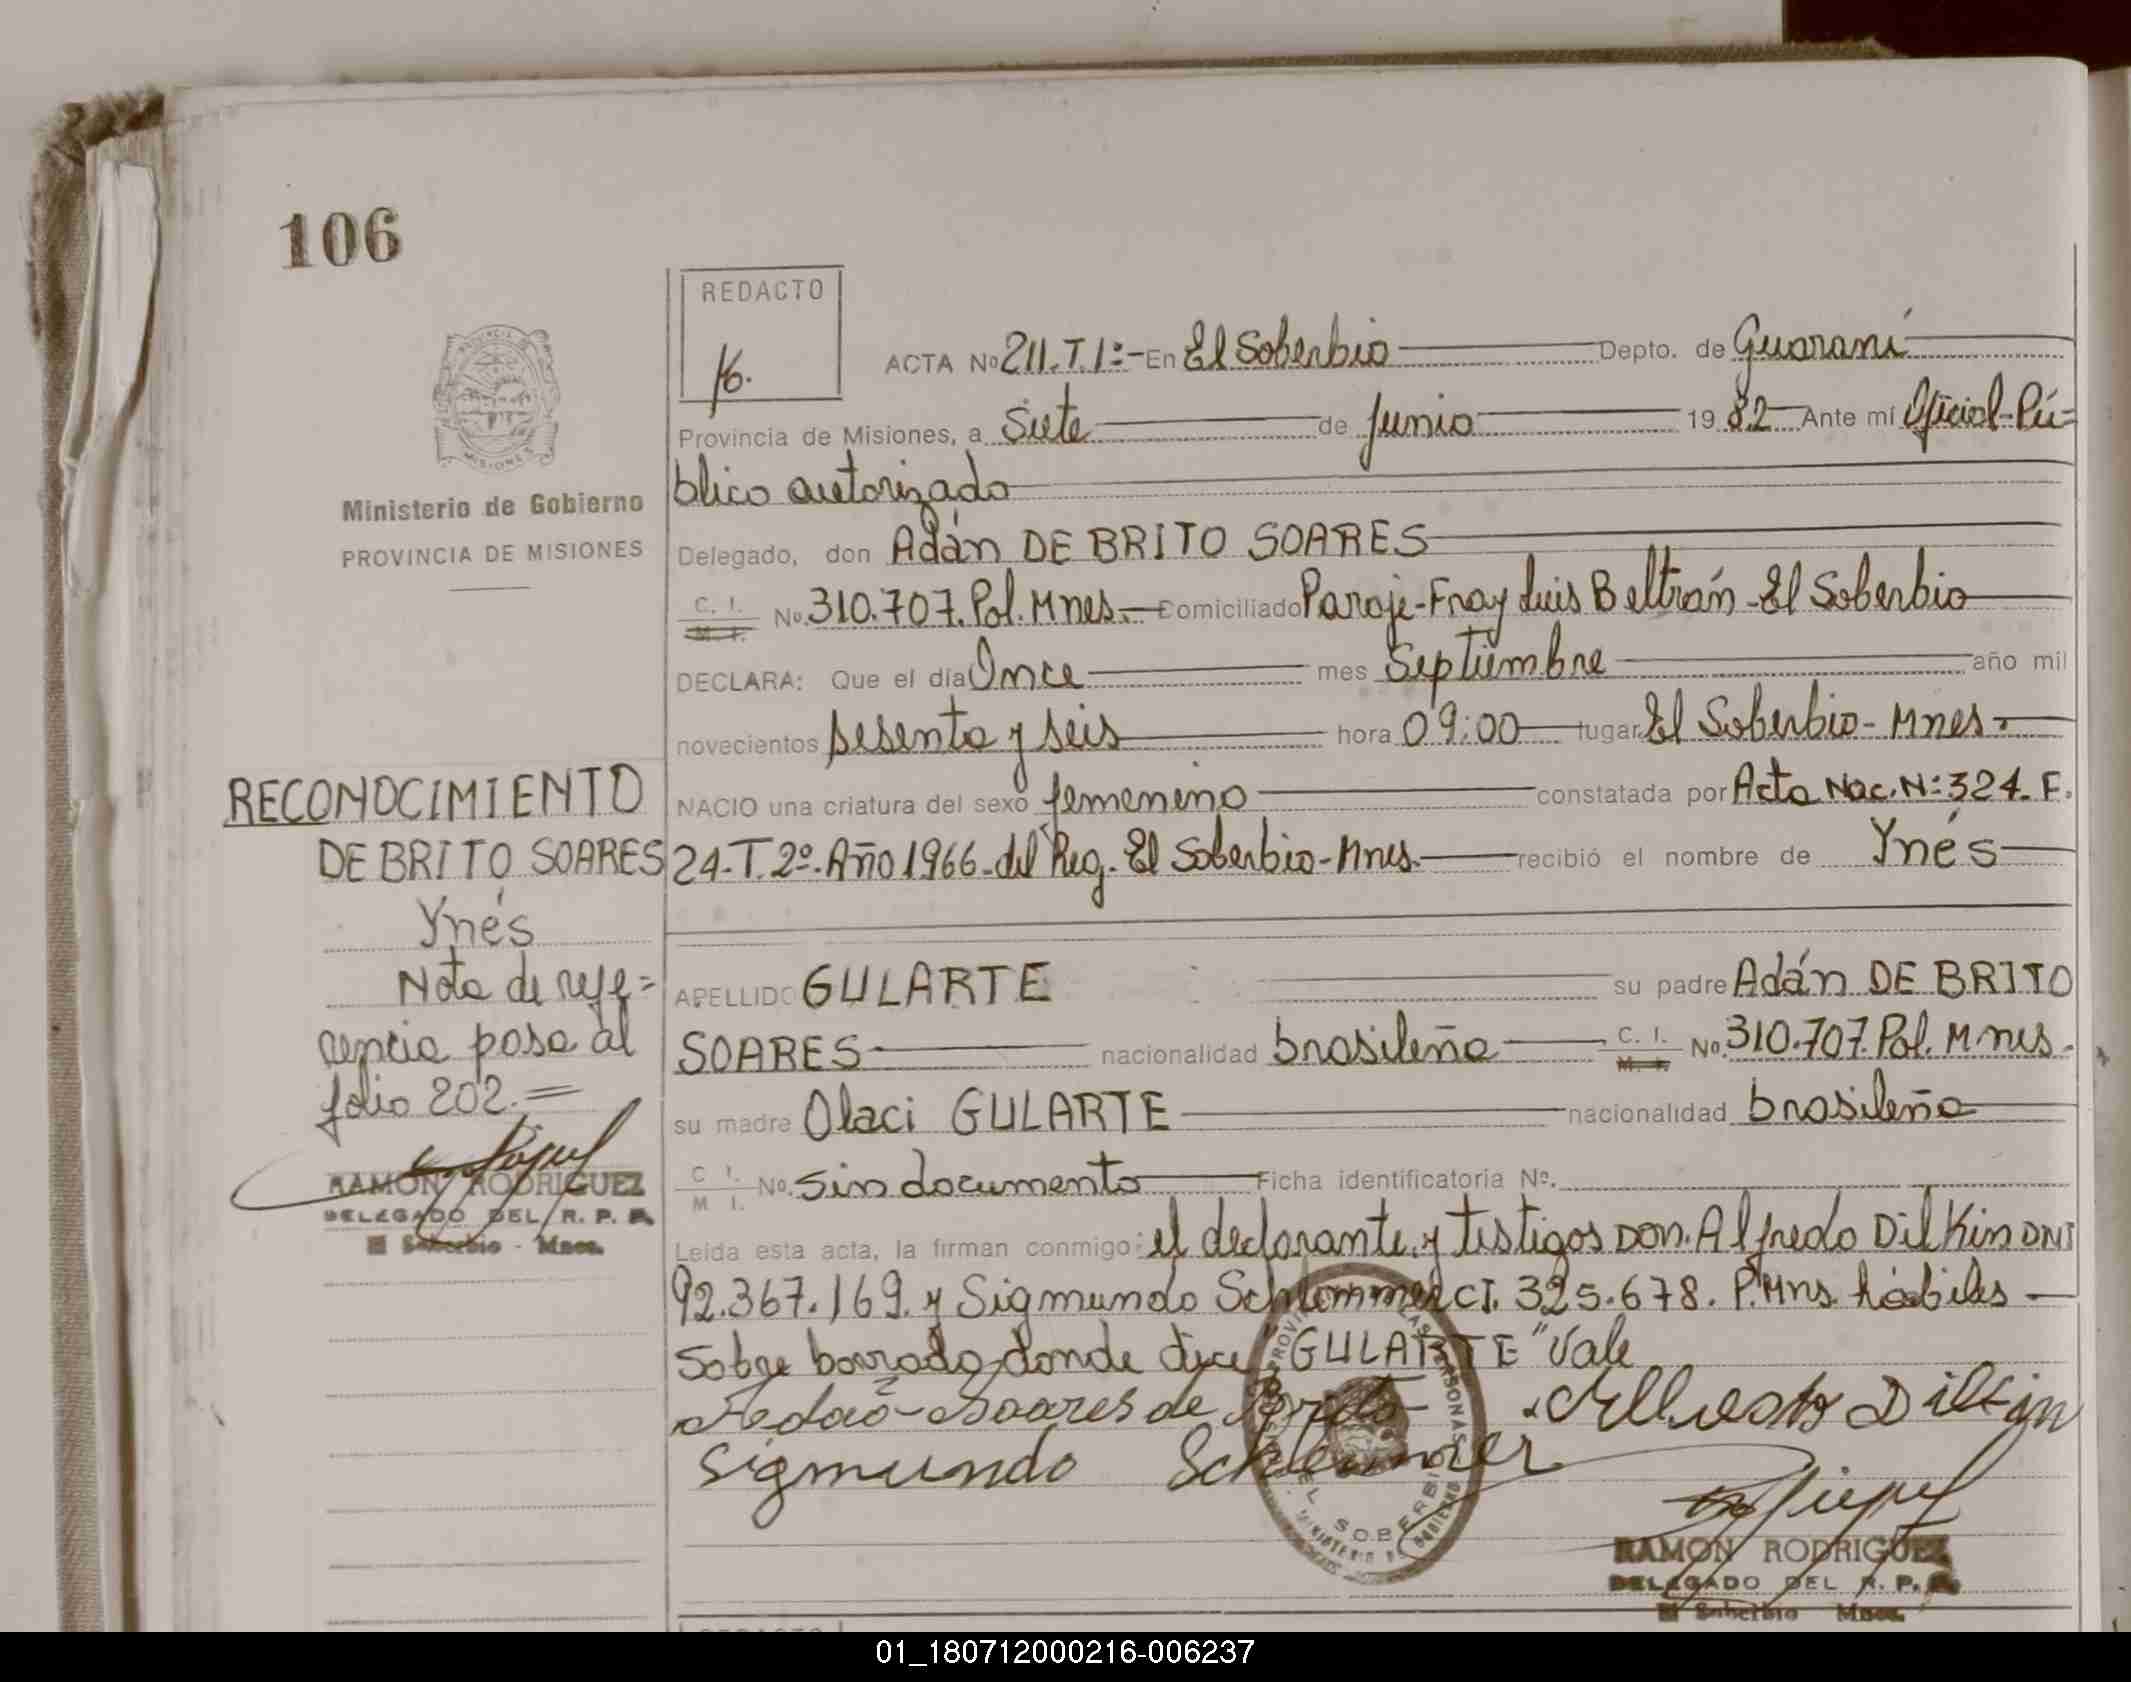 106
REDACTO
ACTA Nº 211.T.1º- En El Soberbio Depto. de Guaraní
Provincia de Misiones, a Siete de junio 19 82 Ante mí Oficial-Pú=
blico autorizado
Delegado, don Adán DE BRITO SOARES
C. I. M. I. No. 310.707. Pol. Mnes. Domiciliado Paraje-Fray Luis Beltrán-El Soberbio
DECLARA: Que el día Once mes Septiembre año mil
novecientos sesenta y seis hora 09:00 lugar El Soberbio-Mnes.
NACIO una criatura del sexo femenino constatada por Acta Nac. Nº 324. F.
24-T. 2º-Año 1966-del Reg. El Soberbio-Mnes. recibió el nombre de Ynés
APELLIDO GULARTE su padre Adán DE BRITO
SOARES nacionalidad brasileña C. I. M. I. No. 310.707 Pol. Mnes.
su madre Olaci GULARTE nacionalidad brasileña
C I. M I. No. sin documento Ficha identificatoria Nº.
Leída esta acta, la firman conmigo: el declarante, y testigos Don. Alfredo Dilkin DNI
92.367.169. y Sigmundo Schlemmer CI. 325.678. P. Mns. hábiles
Sobre borrado, donde dice, "GULARTE" Vale
Soares de Brito
Dilkin
Sigmundo Schlemmer
RAMON RODRIGUEZ
DELEGADO DEL R. P. P.
El Soberbio Mnes.
PROVINCIA DE MISIONES
Ministerio de Gobierno
PROVINCIA DE MISIONES
RECONOCIMIENTO
DE BRITO SOARES
Ynés
Nota de refe=
rencia pasa al
folio 202.=
RAMON RODRIGUEZ
DELEGADO DEL R. P. P.
El Soberbio - Mnes.
EL SOBERBIO
MINISTERIO DE GOBIERNO
REDACTO
01_180712000216-006237